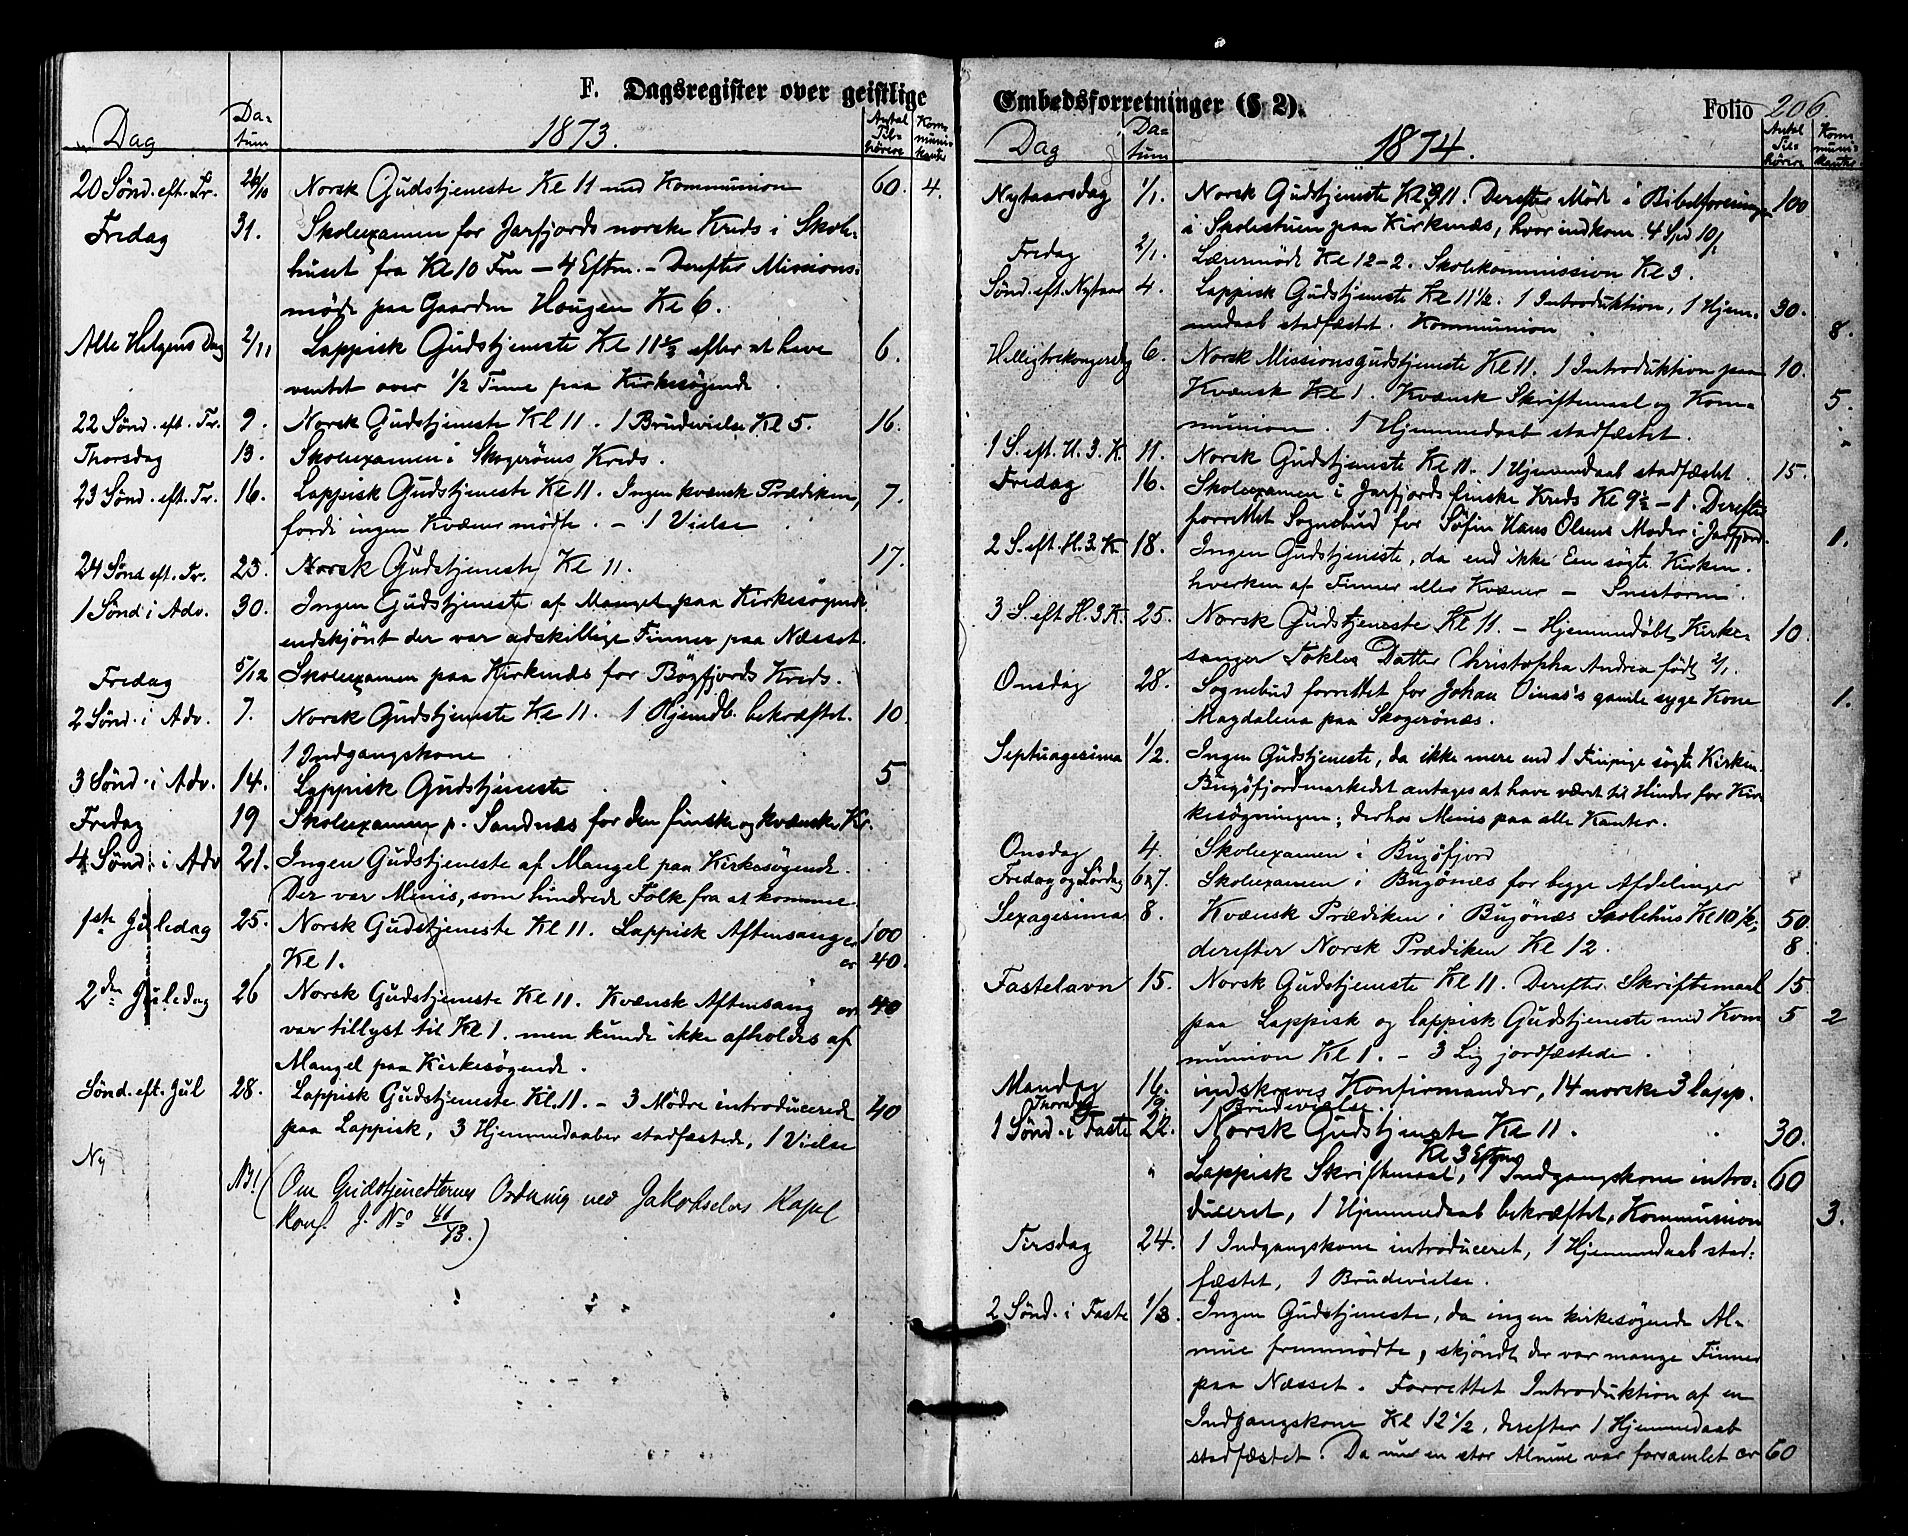 F. Dagsregister over geistlige
Dag Da-tum 1873. Antal Til-hörere Kom-muni-kanter
20 Sönd. eft. Tr. 26/10 Norsk Gudstjeneste Kl 11 med Kommunion 60. 4.
Fredag 31. Skoleexamen for Jarfjords norske Kreds i Skole-
huset fra Kl 10 Fm – 4 Eftm. – Derefter Missions-
möde paa Gaarden Haugen Kl 6.
Alle Helgens Dag 2/11 Lappisk Gudstjeneste Kl 11½ efter at have 6.
ventet over ½ Time paa Kirkesögende.
22 Sönd. eft. Tr. 9. Norsk Gudstjeneste Kl 11. 1 Brudevielse Kl 5. 16.
Thorsdag 13. Skoleexamen i Skogeröens Kreds.
23 Sönd. eft. Tr. 16. Lappisk Gudstjeneste Kl 11. Ingen kvænsk Prædiken, 7.
fordi ingen Kvæner mödte. – 1 Vielse
24 Sönd eft. Tr. 23. Norsk Gudstjeneste Kl 11. 17.
1 Sönd i Adv. 30. Ingen Gudstjeneste af Mangel paa Kirkesögende,
endskjönt der var adskillige Finner paa Næsset.
Fredag 5/12 Skoleexamen paa Kirkenæs for Bögfjords Kreds.
2 Sönd. i Adv. 7. Norsk Gudstjeneste Kl 11. 1 Hjemdb. bekræftet. 10
1 Indgangskone
3 Sönd. i Adv. 14. Lappisk Gudstjeneste 5
Fredag 19 Skoleexamen p. Sandnæs for den finske og kvænske Kr.
4 Sönd. i Adv 21. Ingen Gudstjeneste af Mangel paa Kirkesögende.
Der var Menis, som hindrede Folk fra at komme.
1ste Juledag 25. Norsk Gudstjeneste Kl 11. Lappisk Aftensang cr 100
Kl 1. cr 40.
2den Juledag 26 Norsk Gudstjeneste Kl 11. Kvænsk Aftensang cr 40
var tillyst til Kl 1. men kunde ikke afholdes af
Mangel paa Kirkesögende.
Sönd. eft. Jul 28. Lappisk Gudstjeneste Kl. 11. – 3 Mödre introducerede 40
paa Lappisk, 3 Hjemmedaaber stadfæstede, 1 Vielse
Ny
NB! (Om Gudstjenesternes Ordning ved Jakobselvs Kapel
konf. J. No 41/73.)
Embedsforretninger (§ 2). Folio 206.
Dag Da-tum 1874. Antal Til-hörere Kom-muni-kanter
Nytaarsdag 1/1. Norsk Gudstjeneste Kl 11. Derefter Möde i Bibelforeningen 100
i Skolestuen paa Kirkenæs, hvor indkom 4 Spd 10 ß
Fredag 2/1. Lærermöde Kl 12–2. Skolekommission Kl 3.
Sönd. eft. Nytaar 4. Lappisk Gudstjeneste Kl 11½. 1 Introduktion, 1 Hjem- 30.
medaab stadfæstet. Kommunion 8.
Helligtrekongersdag 6. Norsk Missionsgudstjeneste Kl 11. 1 Introduktion paa 10.
Kvænsk Kl 1. Kvænsk Skriftemaal og Kom- 5.
munion. 1 Hjemmedaab stadfæstet.
1 S. eft. H. 3. K. 11. Norsk Gudstjeneste Kl 11. 1 Hjemmedaab stadfæstet. 15.
Fredag 16. Skoleexamen i Jarfjords finske Kreds Kl 9½ – 1. Derefter
forrettet Sognebud for Söfin Hans Olsens Moder i Jarfjord. 1.
2 S. eft. H. 3. K. 18. Ingen Gudstjeneste, da end ikke Een sögte Kirken.
hverken af Finner eller Kvæner – Snestorm.
3 S. eft H. 3. K. 25. Norsk Gudstjeneste Kl 11. – Hjemmedöbt Kirke- 10.
sanger Datter Christopha Andrea föd 2/1.
Onsdag 28. Sognebud forrettet for Johan Oinas's gamle syge Kone 1.
Magdalena paa Skogerönæs.
Septuagesima 1/2. Ingen Gudstjeneste, da ikke mere end 1 Finpige sögte Kirken.
Bugöfjordmarkedet antages at have været til Hinder for Kir-
kesögningen; derhos Menis paa alle Kanter.
Onsdag 4. Skoleexamen i Bugöfjord
Fredag og Lördag 6 & 7. Skoleexamen i Bugönæs for begge Afdelinger
Sexagesima 8. Kvænsk Prædiken i Bugönæs Skolehus Kl 10½, 50.
derefter Norsk Prædiken Kl 12. 8
Fastelavn 15. Norsk Gudstjeneste Kl 11. Derefter Skriftemaal 15.
paa Lappisk og lappisk Gudstjeneste med Kom- 5 2
munion Kl 1. – 3 Lig jordfæstede.
Mandag 16. indskreves Konfirmander, 14 norske 3 lapp.
Thorsdag 19. 1 Brudevielse.
1 Sönd. i Faste 22. Norsk Gudstjeneste Kl 11. 30.
Kl 3 Eftm
" Lappisk Skriftemaal, 1 Indgangskone intro- 60
duceret, 1 Hjemmedaab bekræftet, Kommunion 3.
Tirsdag 24. 1 Indgangskone introduceret, 1 Hjemmedaab stad-
fæstet, 1 Brudevielse.
2 Sönd. i Faste 1/3. Ingen Gudstjeneste, da ingen kirkesögende Al-
mue fremmödte, skjöndt der var mange Finner
paa Næsset. Forrettet Introduktion af en
Indgangskone Kl 12½, derefter 1 Hjemmedaab
stadfæstet. Da nu en stor Almue var forsamlet cr 60